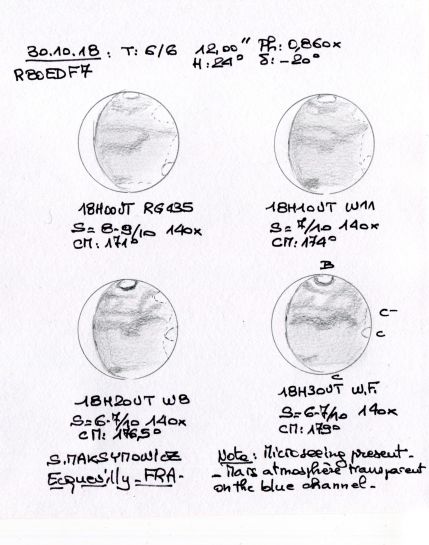 30.10.18 : T: 6/6 12,00" Ph: 0,860x
R80EDF7 H: 24° δ: -20°
18H00UT RG435
S= 8-9/10 140x
CM: 171°
18H10UT W11
S= 7/10 140x
CM: 174°
B
C-
C
C
18H20UT W8
S=6-7/10 140x
CM: 176,5°
18H30UT W.F.
S=6-7/10 140x
CM: 179°
S.MAKSYMOWICZ
Ecquevilly - FRA -
Note : Micro seeing present -
- Mars atmosphère transparent
on the blue channel -